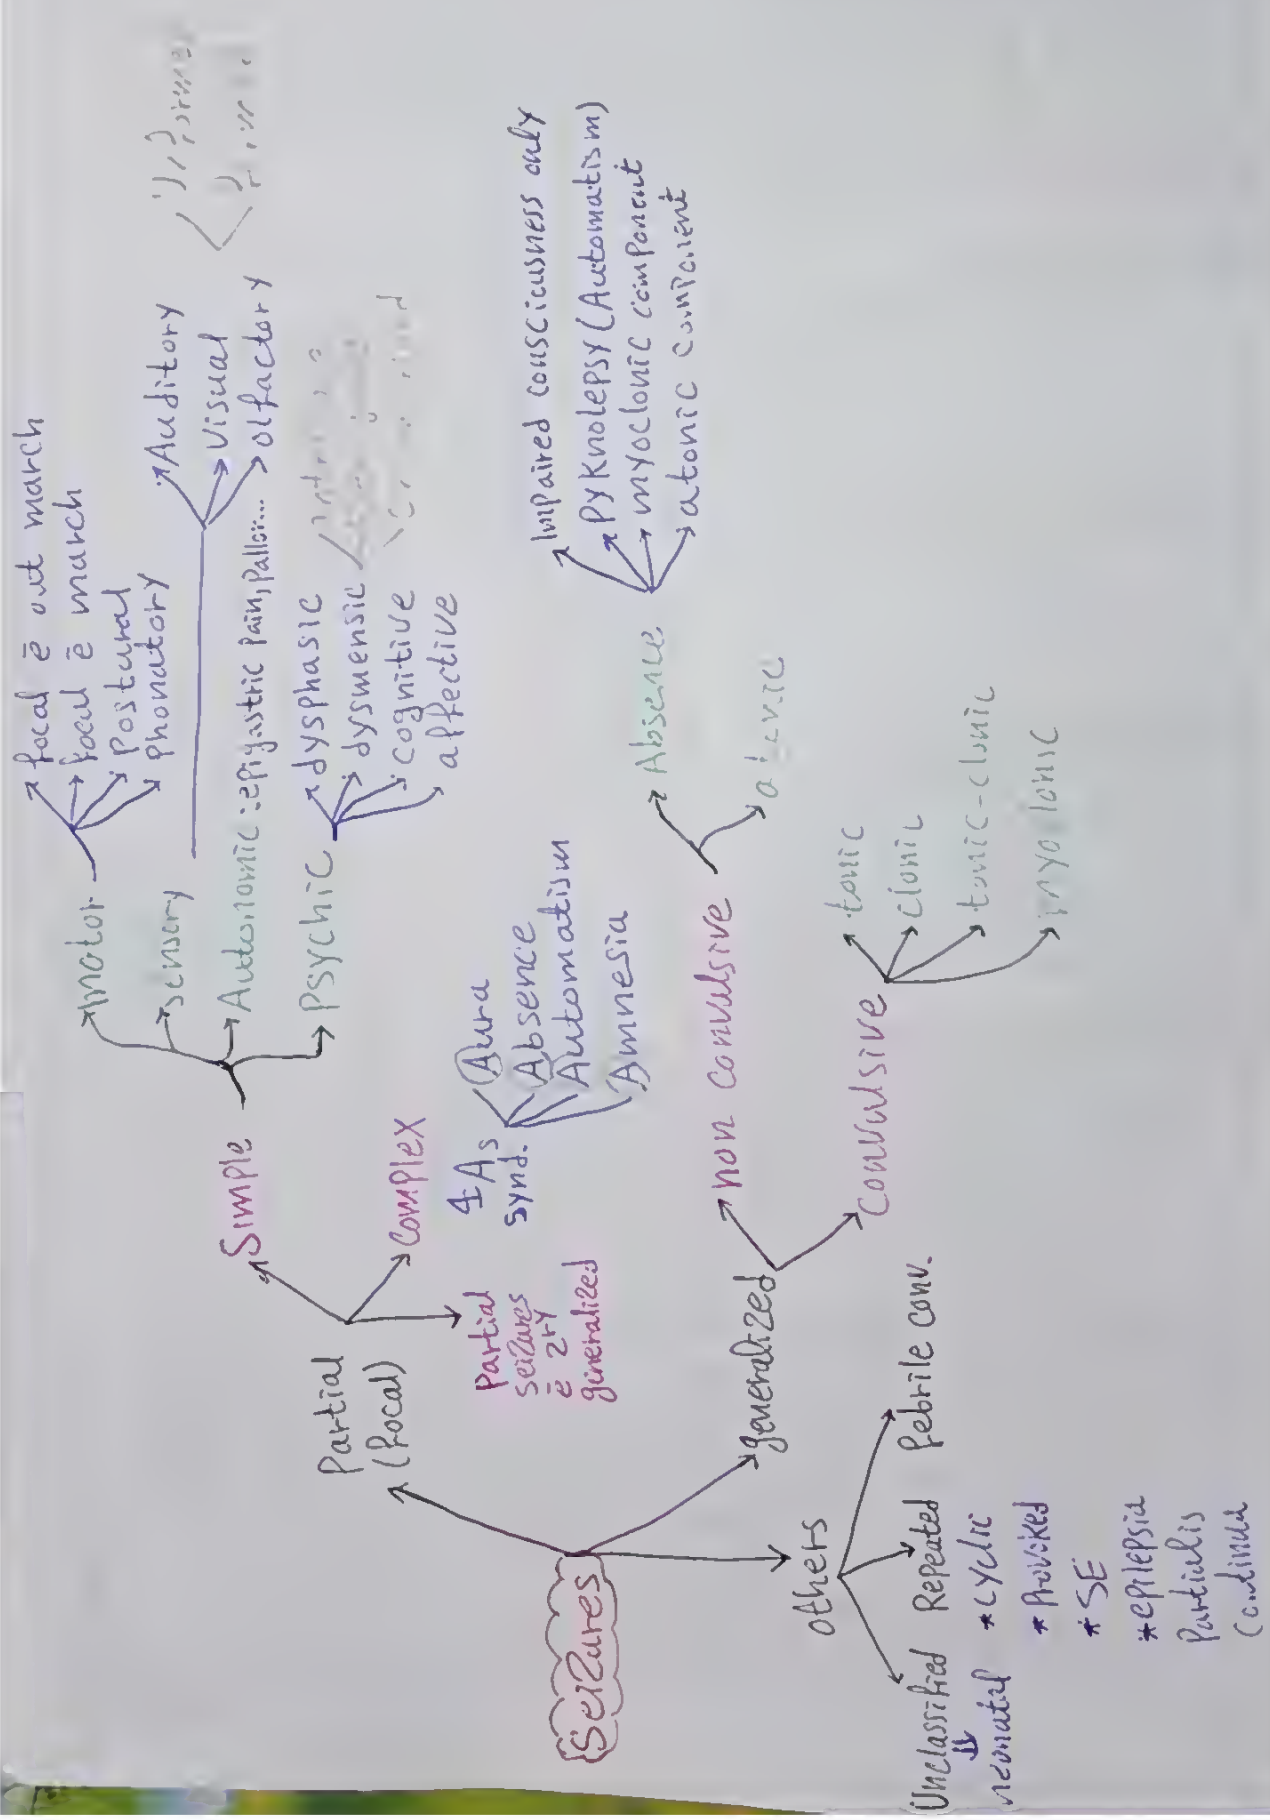 Seizures
Partial
(focal)
Simple
motor
focal ē out march
focal ē march
Postural
Phonatory
sensory
Auditory
Visual
olfactory
Autonomic : epigastric Pain, Pallor...
Psychic
dysphasic
dysmensic
cognitive
affective
complex
4 As
synd.
Aura
Absence
Automatism
Amnesia
Partial
seizures
ē 2ry
generalized
generalized
non convulsive
Absence
Impaired consciousness only
Pyknolepsy (Automatism)
myoclonic component
atonic component
atonic
Convulsive
tonic
clonic
tonic-clonic
myoclonic
others
Unclassified
⇓
neonatal
Repeated
*cyclic
*Provoked
*SE
*epilepsia
Partialis
Continua
febrile conv.